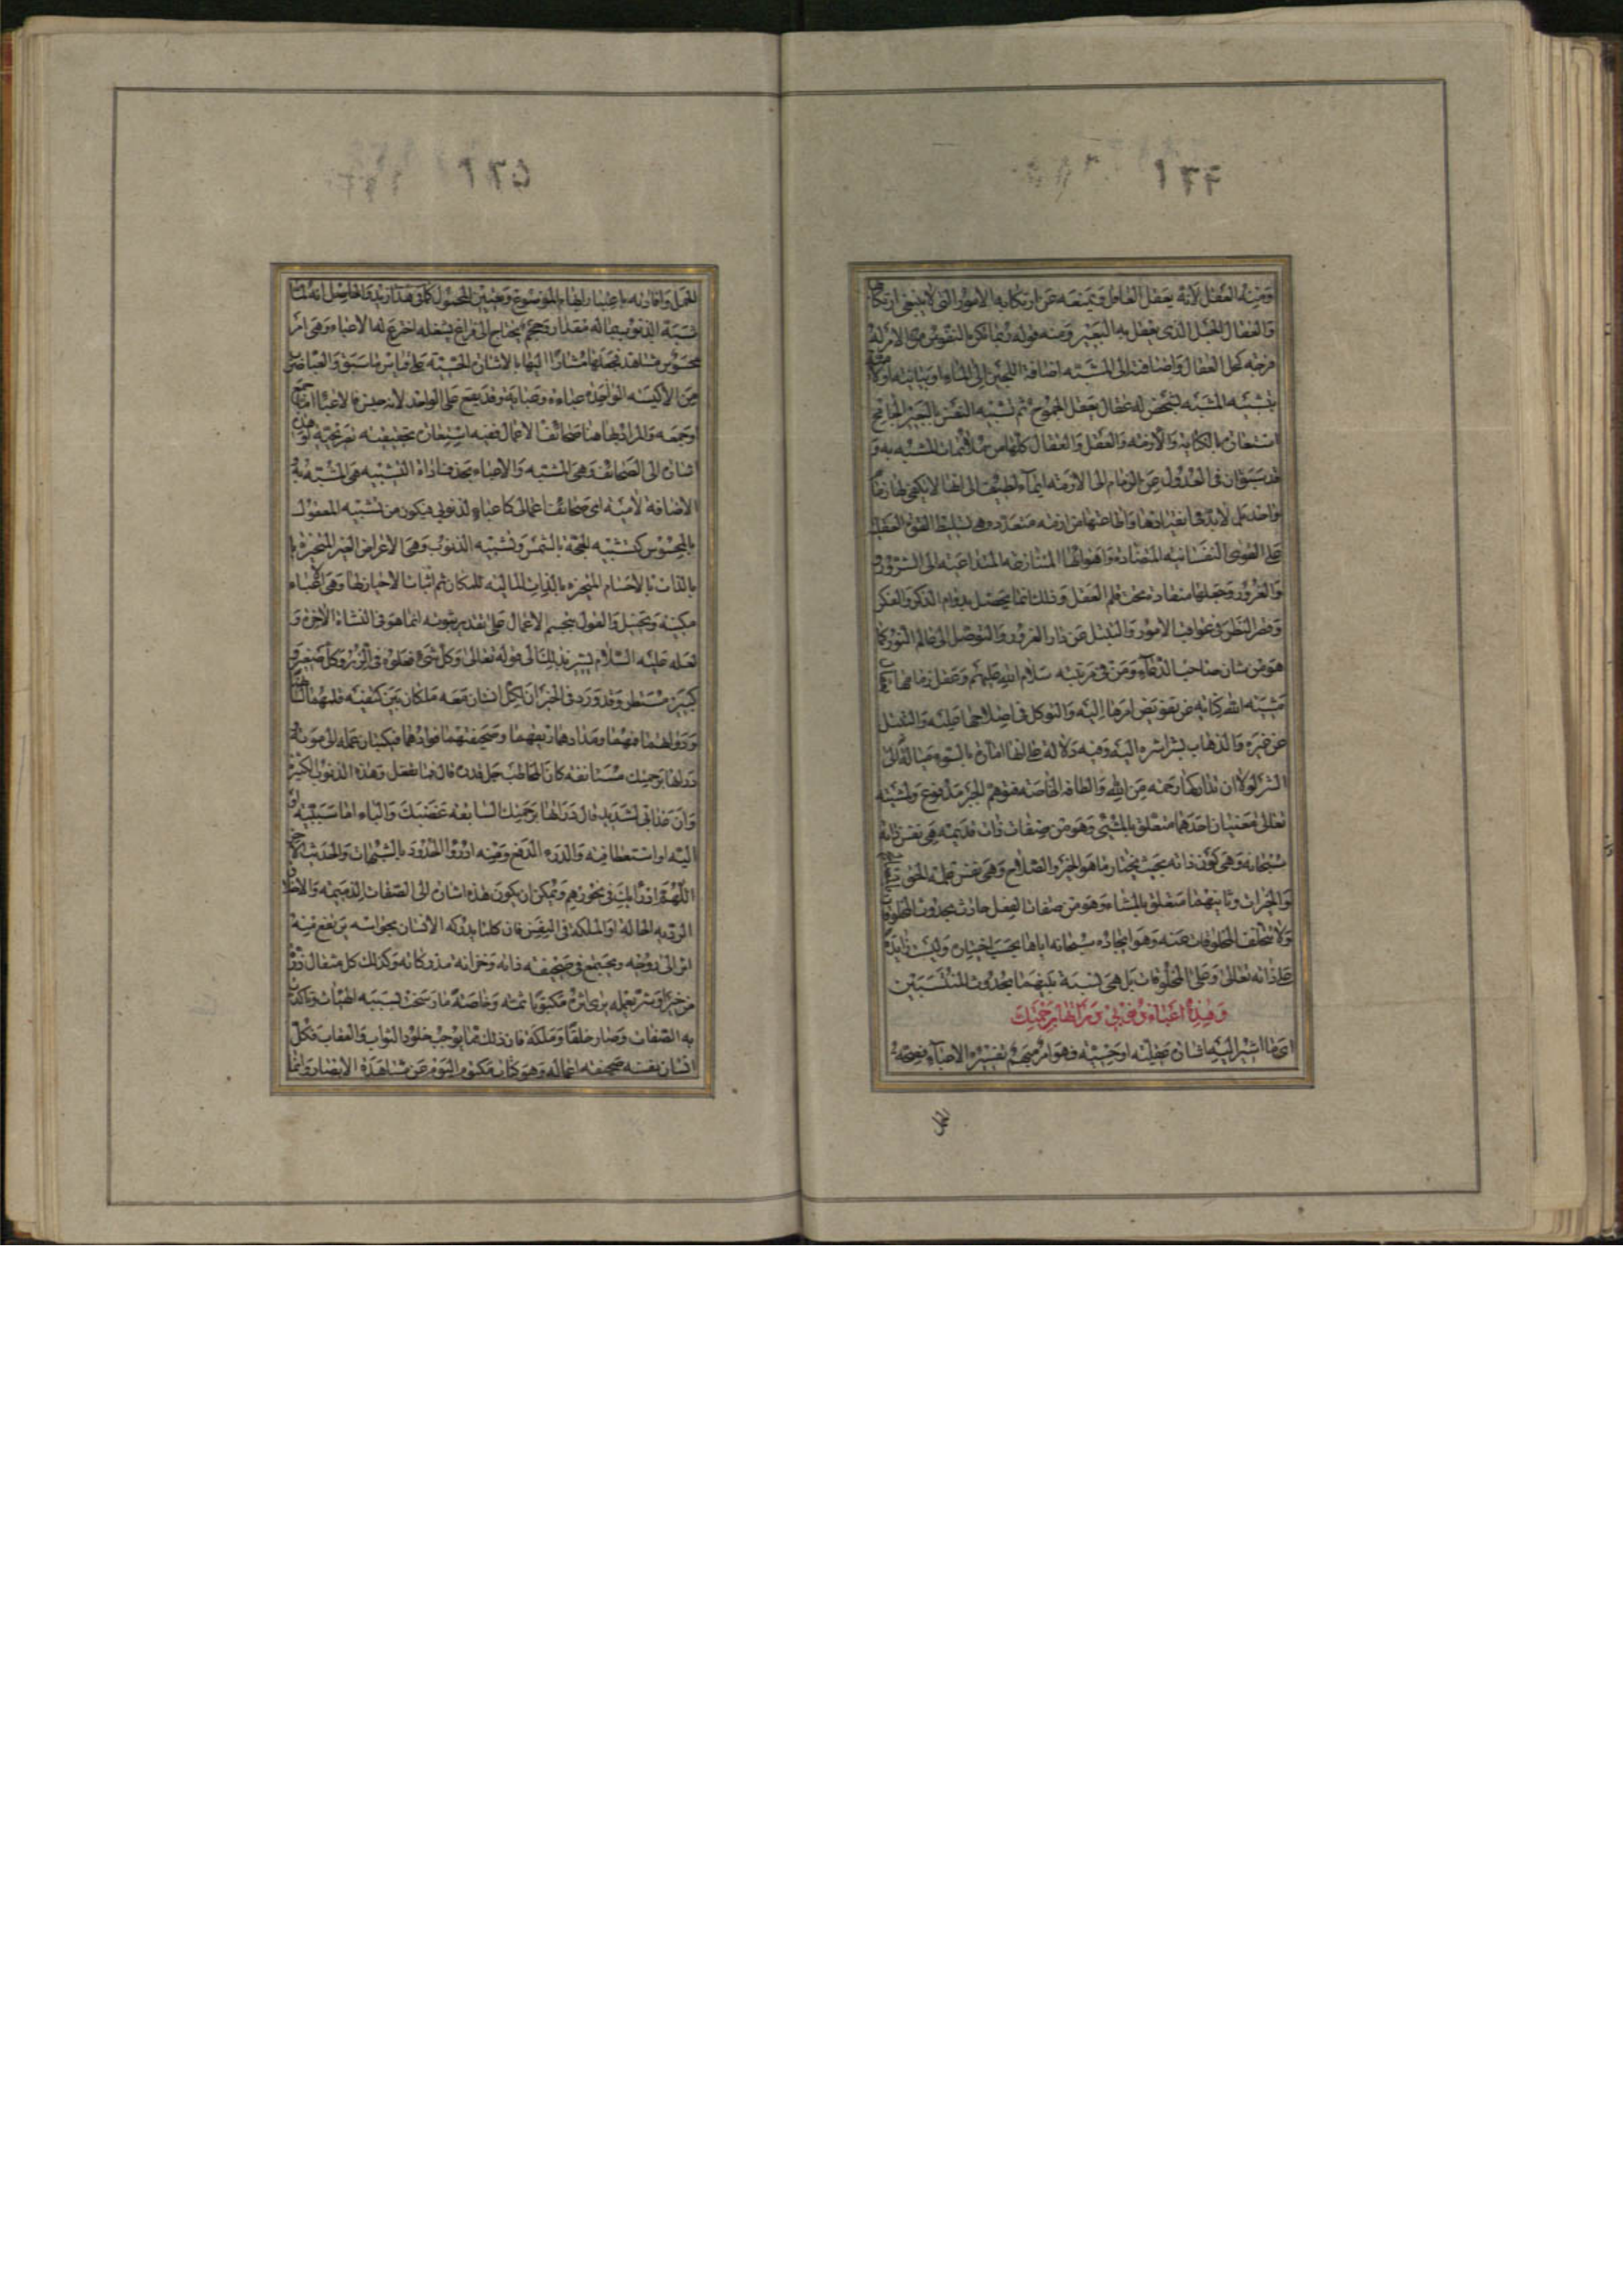 ومنه العقل لأنه يعقل العاقل ويمنعه عن ارتكابه الامور التي لا ينبغي ارتكابها
والعقال الحبل الذي يعقل به البعير ومنه قوله
كحل العقال واضافته الى المشبه اضافة اللجين الى الماء او بيانية اولا
بتشبيه المشبه لشخص له عقال يعقل الجموح ثم تشبيه النفس بالبعير الجامح
استعارة بالكناية والأزمة والعقل والعقال كلها من ملائمات المشبه به و
قد سبق ان في العدول عن الزمام الى الازمة ايماء لطيف الى انها لا يكفي لها زمام
واحد بل لابد في انقيادها واطاعتها من ازمة متعددة وهي تسليط القوة العقلية
على القوى النفسانية المتضادة واهوائها المتنازعة المتداعية الى الشرور
والغرور وجعلها منقادة تحت قلم العقل وذلك انما يحصل بدوام الذكر والفكر
وقصر النظر في عواقب الامور والتبتل عن دار الغرور والتوصل الى عالم النور كما
هو من شان صاحب الدعاء ومن في مرتبته سلام الله عليهم وعقل زمامها
مشيته الله كناية عن تفويض امرها اليه والتوكل في اصلاحها عليه والتبتل
عن غيره والذهاب بشراشره اليه وفيه دلالة على انها امارة بالسوء ميالة الى
الشر لولا ان تداركها رحمة من الله والطافه الخاصة فتوهم الجبر مدفوع ولمشيته
تعالى معنيان احدهما متعلق بالمشيئ وهو من صفات ذات قديمة هي نفس ذاته
سبحانه وهي كون ذاته بحيث يختار ما هو الخير والصلاح وهي نفس علمه الحق
والخيرات وثانيهما متعلق بالمشاء وهو من صفات الفعل حادث بحدوث المخلوقات
ولا تتخلف المخلوقات عنه وهو ايجاده سبحانه اياها بحسب اختياره وليست زايدة
على ذاته تعالى وعلى المخلوقات بل هي نسبة بينهما بحدوث المنتسبين
وهذه اعباء ذنوبي درأتها برحمتك
اي ما اشير اليه اشارة عقلية او حسية فهو امر مبهم تفسيره الاعباء فصحة
الحمل
الحمل وافادته باعتبار ايضاح الموضوع وتعيين المحمول كما في هذا زيد والحاصل انه لما
شبه الذنوب بماله مقدار وحجم يحتاج الى فراغ يشغله اخترع لها الاعباء وهي امر
محسوس مشاهد فجعلها مشارًا اليها بالاشارة الحسية على قياس ما سبق والعباء ضرب
من الاكسية الواحدة عباءة وعباية وقد يقع على الواحد لانه جنس فالاعباء اما جمع
او جمعه والمراد بها هنا صحائف الاعمال ففيه استعارة تحقيقية
اشارة الى الصحائف وهي المشبه والاعباء بحذف اداة التشبيه هي المشبه به
الاضافة لامية اي صحائف اعمالي كاعباء لذنوبي فيكون من تشبيه المعقول
بالمحسوس كتشبيه الحجة بالشمس وتشبيه الذنوب وهي الاعراض الغير المتحيزة
بالذات بالاجسام المتحيزة بالذات المالية للمكان ثم اثبات الاحياز لها وهي الاعباء
مكنية وتخييل والقول بتجسم الاعمال على تقدير ثبوته انما هو في النشاة الاخرة و
لعله عليه السلام يشير بذلك الى قوله تعالى وكل شيء فعلوه في الزبر وكل صغير و
كبير مستطر وقد ورد في الخبر ان لكل انسان معه ملكان بين كتفيه قلمهما لسانه
ودواتهما فمهما ومدادهما ريقهما وصحيفتهما فؤادهما فيكتبان عمله الى موته
درأتها برحمتك مستانفة كان المخاطب جل قدره قال فما تفعل وهذه الذنوب الكثيرة
وان عذابي لشديد قال درأتها برحمتك السابقة غضبك والباء اما سببية
اليه او استعطافية والدرء الدفع ومنه ادرؤا الحدود بالشبهات والحديث الاخر
اللهم اني ادرأ بك في نحورهم ويمكن ان يكون هذه اشارة الى الصفات الذميمة والاخلاق
الردية الحالة او الملكة في النفس فان كلما يدركه الانسان بحواسه يرتفع منه
اثر الى روحه ويجتمع في صحيفة ذاته وخزانة مدركاته وكذلك كل مثقال ذرة
من خير او شر يعمله يرى اثره مكتوبا ثمة وخاصة ما رسخت بسببه الهيئات وتاكدت
به الصفات وصار خلقًا وملكة فان ذلك مما يوجب خلود الثواب والعقاب فكل
انسان نفسه صحيفة اعماله وهو كتاب مكتوم اليوم عن مشاهدة الابصار وانما